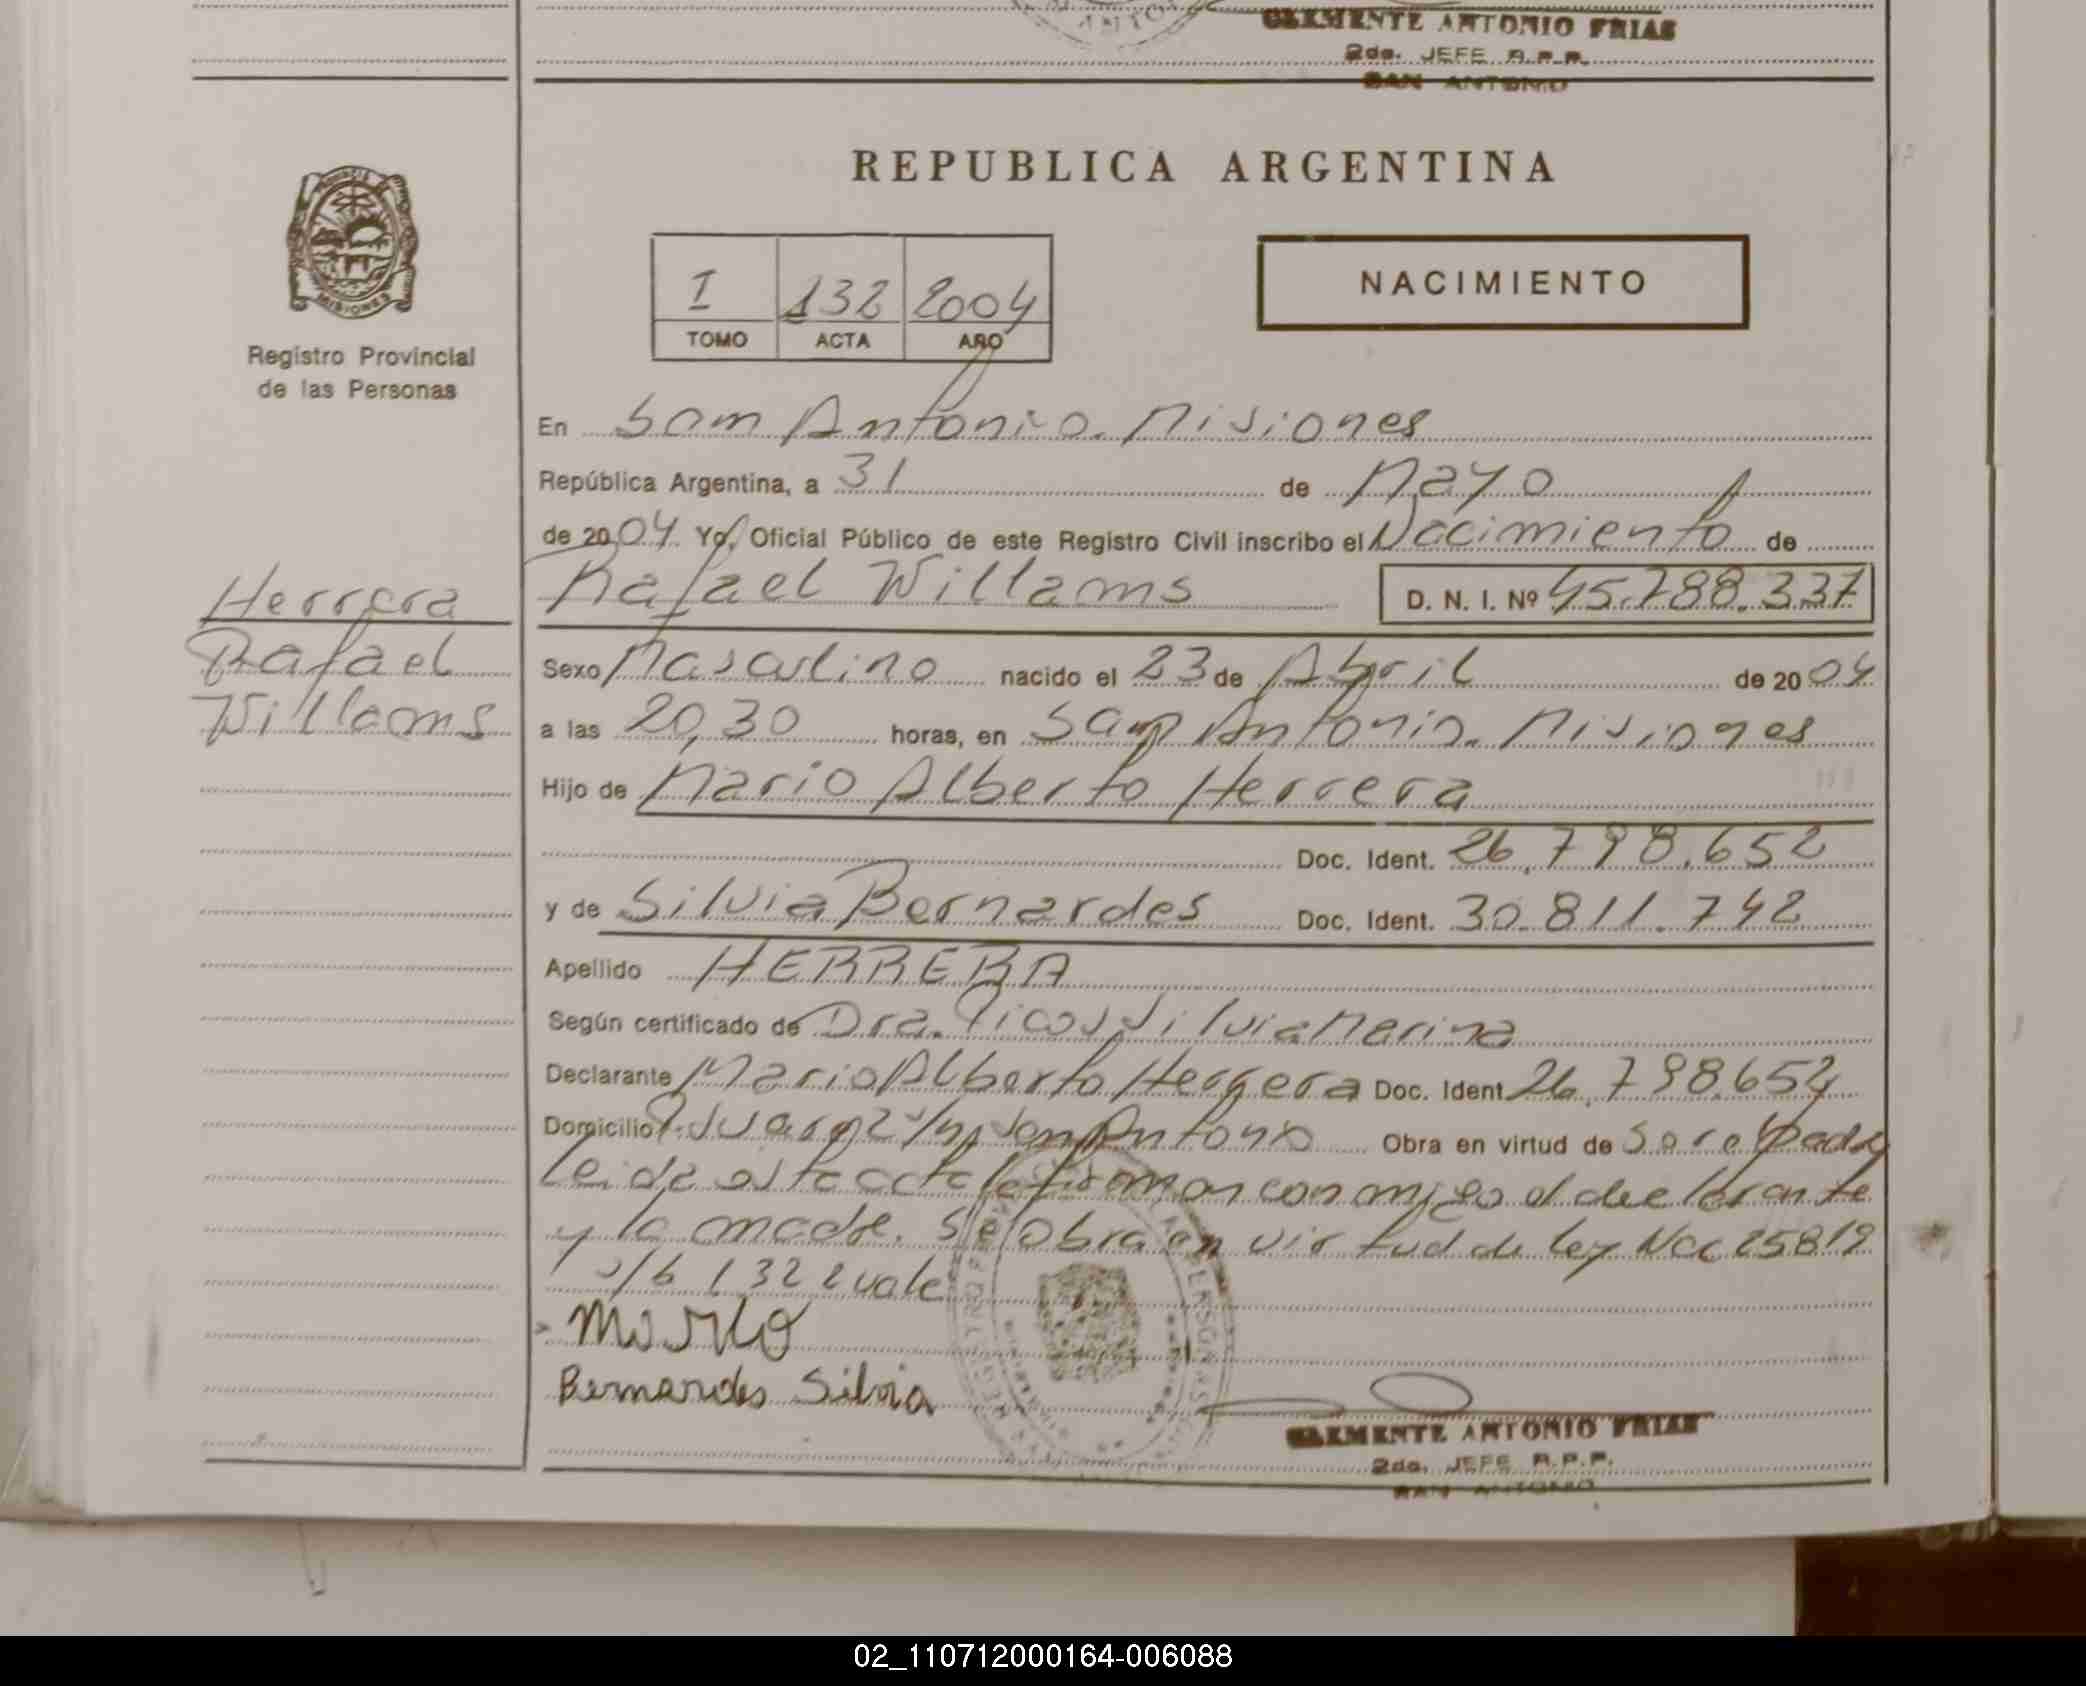 CLEMENTE ANTONIO FRIAS
2do. JEFE R.P.P.
SAN ANTONIO
REPUBLICA ARGENTINA
PROVINCIA DE
MISIONES
Registro Provincial
de las Personas
I 132 2004
TOMO ACTA AÑO
NACIMIENTO
En San Antonio. Misiones
República Argentina, a 31 de Mayo
de 2004. Yo, Oficial Público de este Registro Civil inscribo el Nacimiento de
Rafael Willams D. N. I. Nº 45.788.337
Herrera
Rafael
Willams
Sexo Masculino nacido el 23 de Abril de 2004
a las 20,30 horas, en San Antonio. Misiones
Hijo de Mario Alberto Herrera
Doc. Ident. 26.798.652
y de Silvia Bernardes Doc. Ident. 30.811.742
Apellido HERRERA
Según certificado de Dra. Silvia Marina
Declarante Mario Alberto Herrera Doc. Ident. 26.798.652
Domicilio S/n San Antonio Obra en virtud de Ser el Padre
Leida esta acta la firman con migo el declarante
y la madre. Se obra en virtud de ley Nac 25819
vale
Bernardes Silvia
CLEMENTE ANTONIO FRIAS
2do. JEFE R.P.P.
SAN ANTONIO
02_110712000164-006088